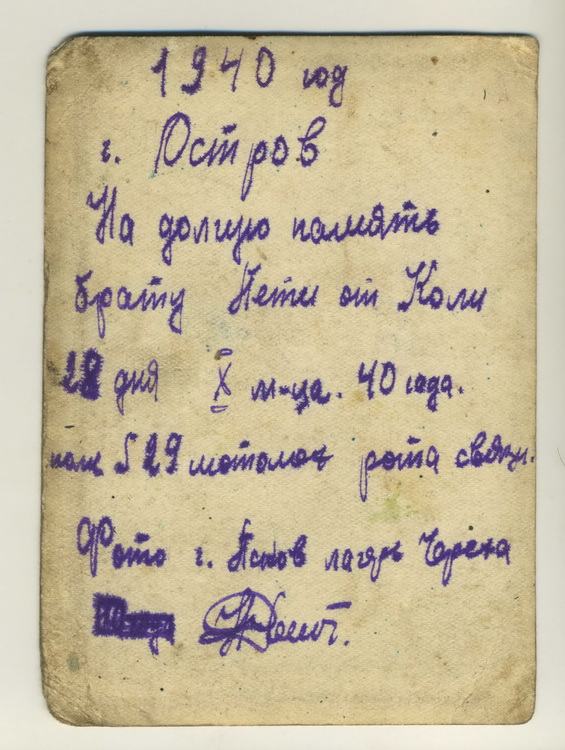 1940 год
г. Остров
На долгую память
брату Пети от Коли
28 дня X м-ца. 40 года.
полк 529 рота связи.
Фото г. Псков лагерь Череха